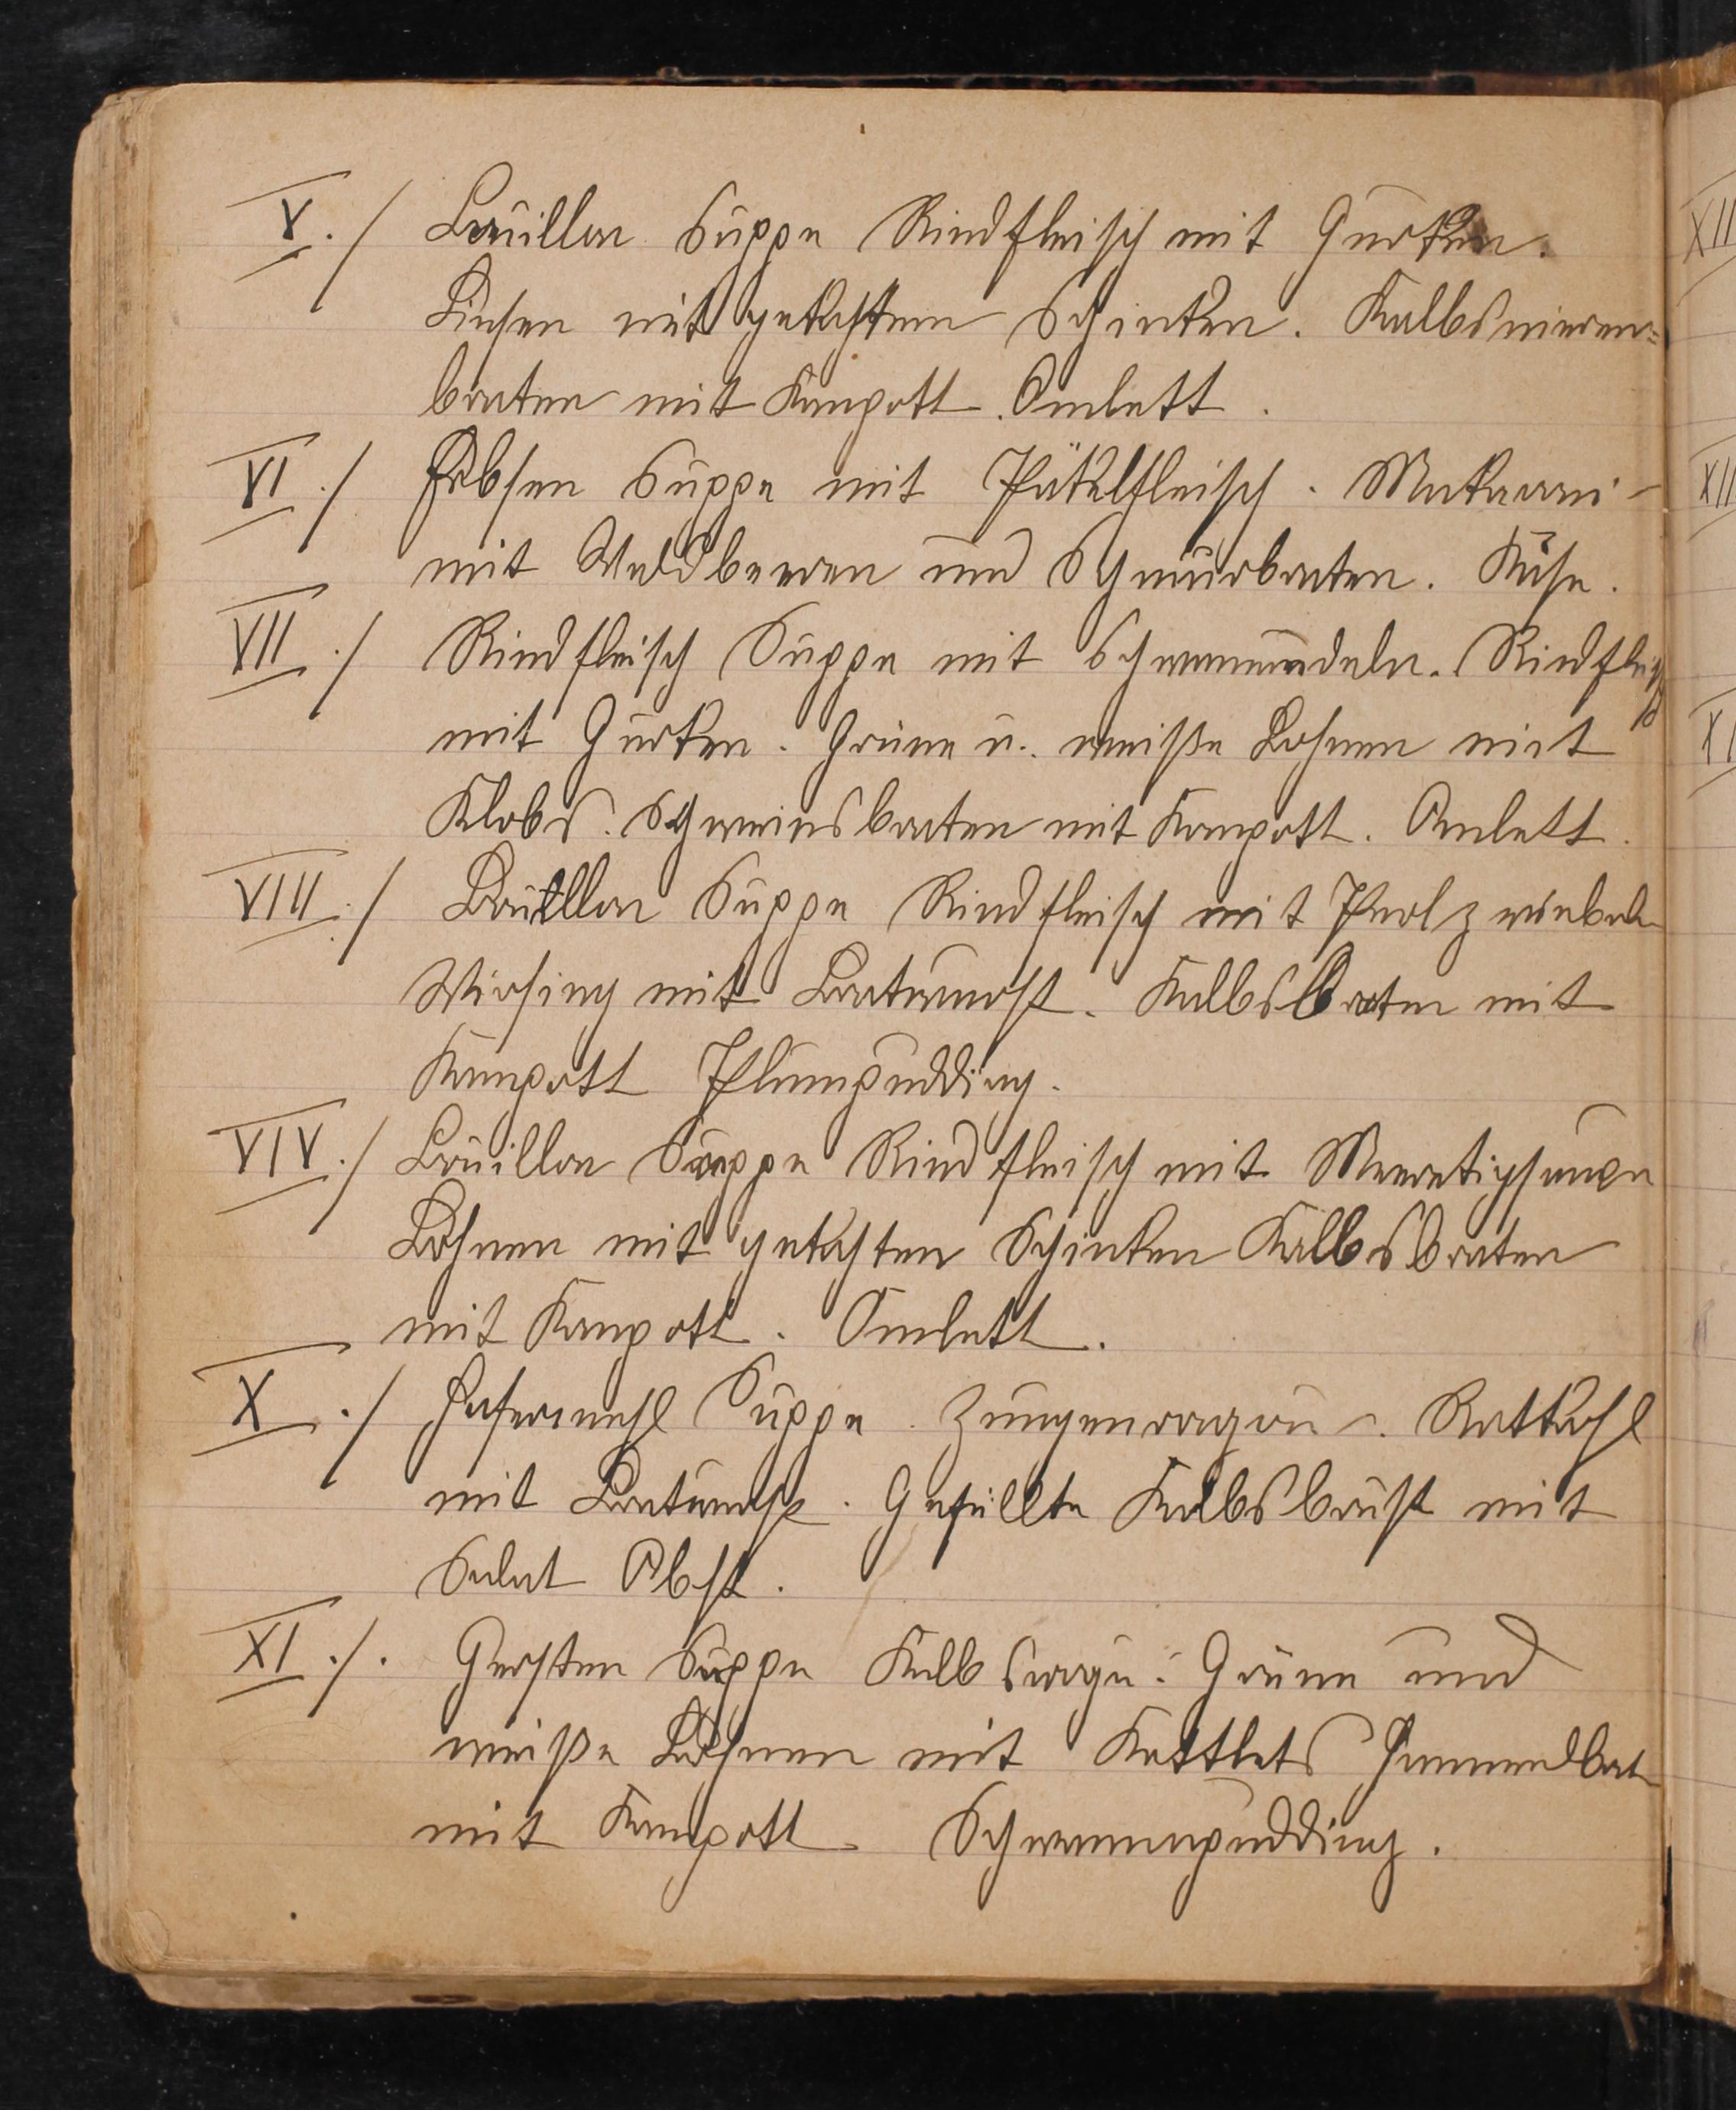 V./ Bouillon Suppe Rindfleisch mit Gurken.
Linsen mit gekochtem Schinken. Kalbsnieren=
braten mit Kompott. Omlett.
VI./ Erbsen Suppe mit Pökelfleisch. Makaroni
mit Waldbeeren und Schmorbraten. Käse.
VII./ Rindfleisch Suppe mit Schwammnudeln. Rindfleisch
mit Gurken. Grüne u. weiße Bohnen mit
Klobs. Schweinsbraten mit Kompott. Omlett.
VIII./ Bouillon Suppe Rindfleisch mit Perlzwiebeln
Wirsing mit Bratwurst. Kalbsbraten mit
Kompott Plumpudding.
VIV./ Bouillon Suppe Rindfleisch mit
Bohnen mit gekochten Schinken Kalbsbraten
mit Kompott. Omlett.
X./ Hafermehl Suppe. Zungenragou. Rotkohl
mit Bratwurst. Gefüllte Kalbsbrust mit
Salat Obst.
XI./. Gersten Suppe Kalbsragu. Grüne und
weiße Bohnen mit Kottlets Hammelbrat
mit Kompott. Schwammpudding.
XII
XII
XI